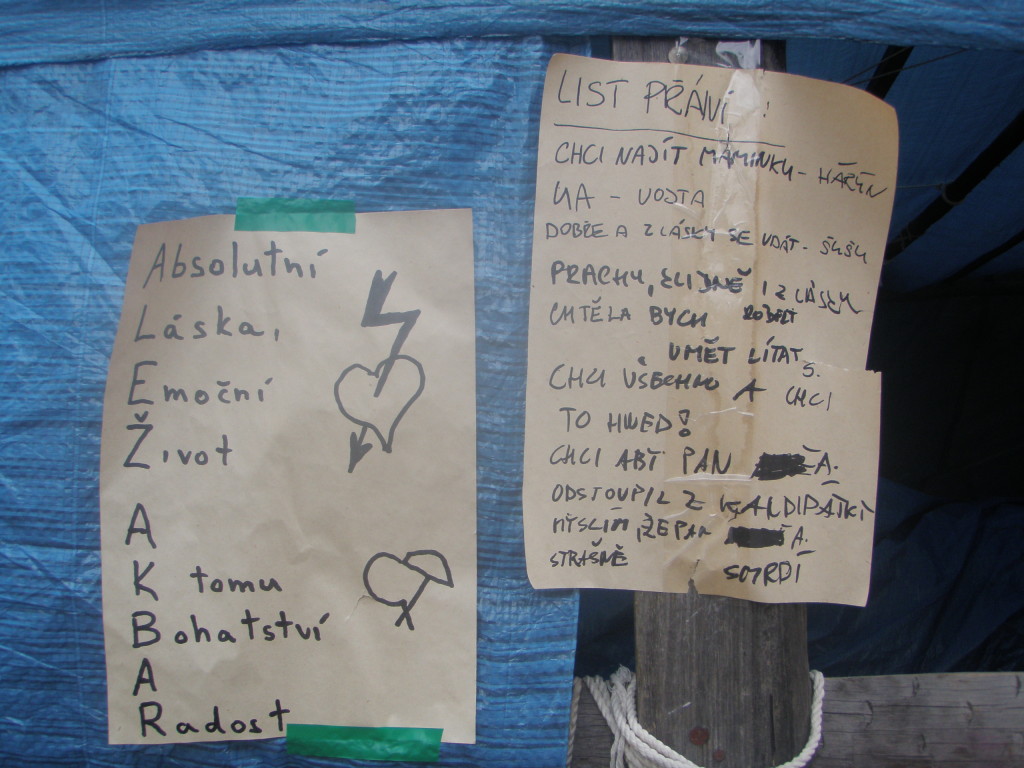 Absolutní
Láska,
Emoční
Život
A
K tomu
Bohatství
A
Radost
LIST PŘÁNÍ!
CHCI NAJÍT MAMINKU -
UA - VOJTA
DOBŘE A Z LÁSKY SE VDÁT - ŠUŠU
PRACHY, I Z LÁSKY
CHTĚLA BYCH
UMĚT LÍTAT
CHCI VŠECHNO A CHCI
TO HNED!
CHCI ABY PAN A.
ODSTOUPIL Z
MYSLÍM, ŽE PAN A.
STRAŠNĚ SMRDÍ